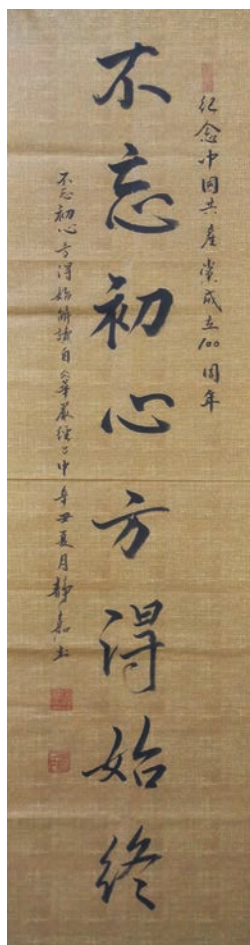 纪念中国共产党成立100周年
不忘初心方得始终
不忘初心方得始終读自《华严经》中辛丑夏月静嘉书